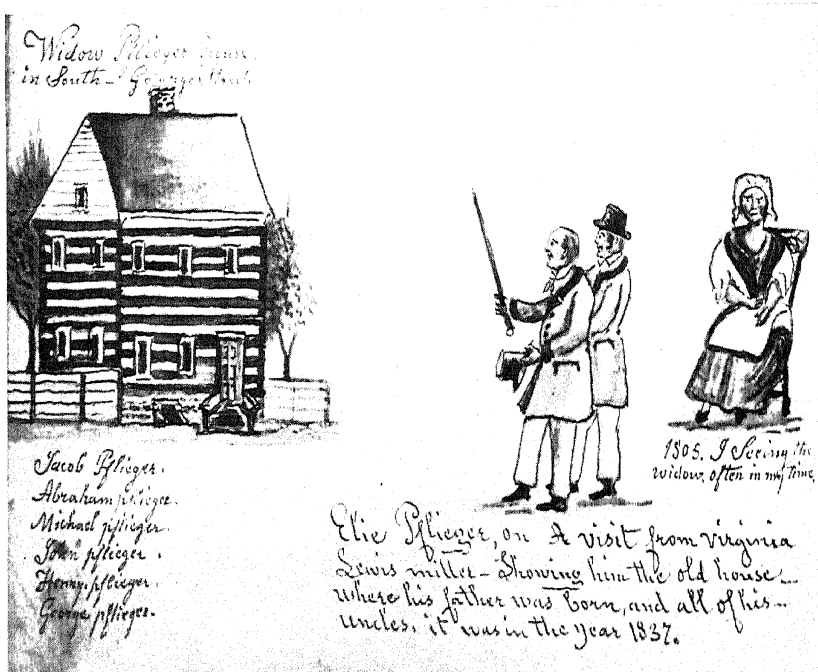 Widow Pflieger house.
in South - George Street
Jacob Pflieger.
Abraham pflieger.
Michael pflieger.
John pflieger.
Henry. pflieger.
George pflieger.
1805. I Seeing the
widow, often in my time,
Elie Pflieger, on A visit from virginia
Lewis miller - Showing him the old house -
where his father was born, and all of his -
uncles. it was in the year 1837.